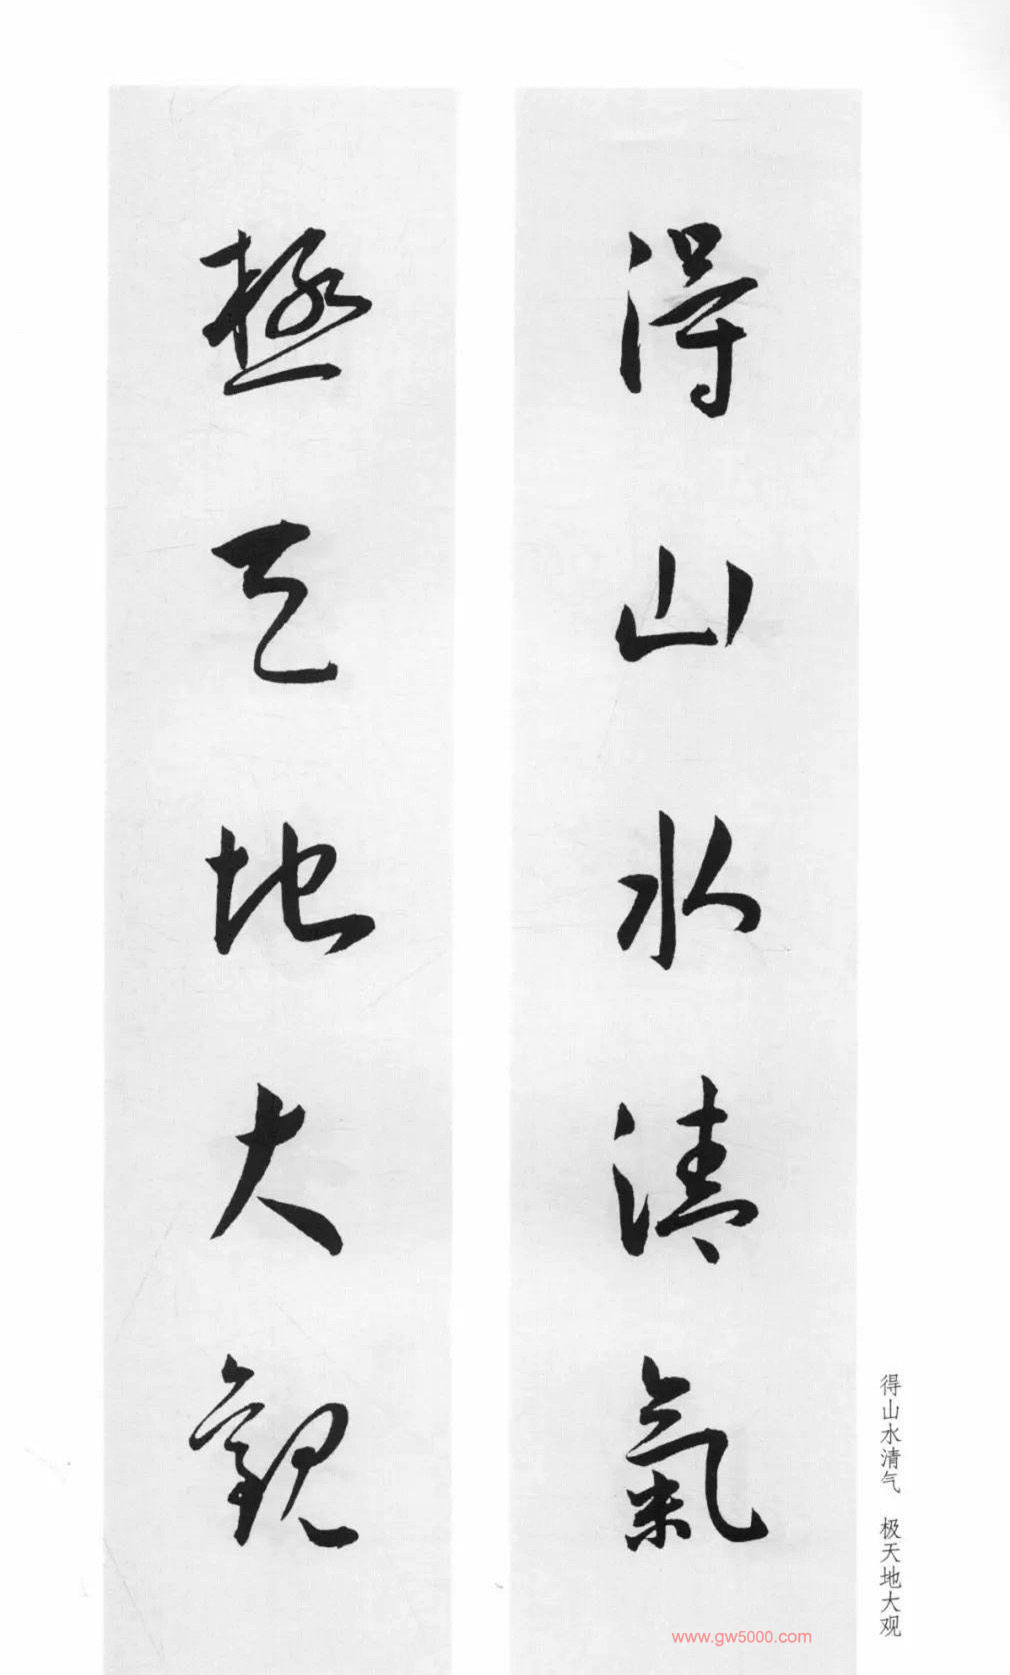 得山水清氣
極天地大觀
得山水清气 极天地大观
www.gw5000.com